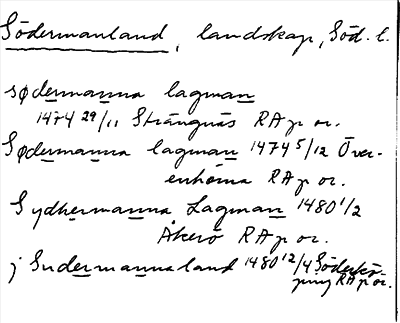 Södermanland, landskap, Söd. l.
sødermanna lagman
1474 29/11 Strängnäs RA p or.
Sødermanna lagman 1474 5/12 Över-
enhörna RA p or.
Sydhermanna Lagman 1480 1/2
Åkerö RA p or.
j Sudermannaland 1480 12/4 Söderkö-
ping RA p or.